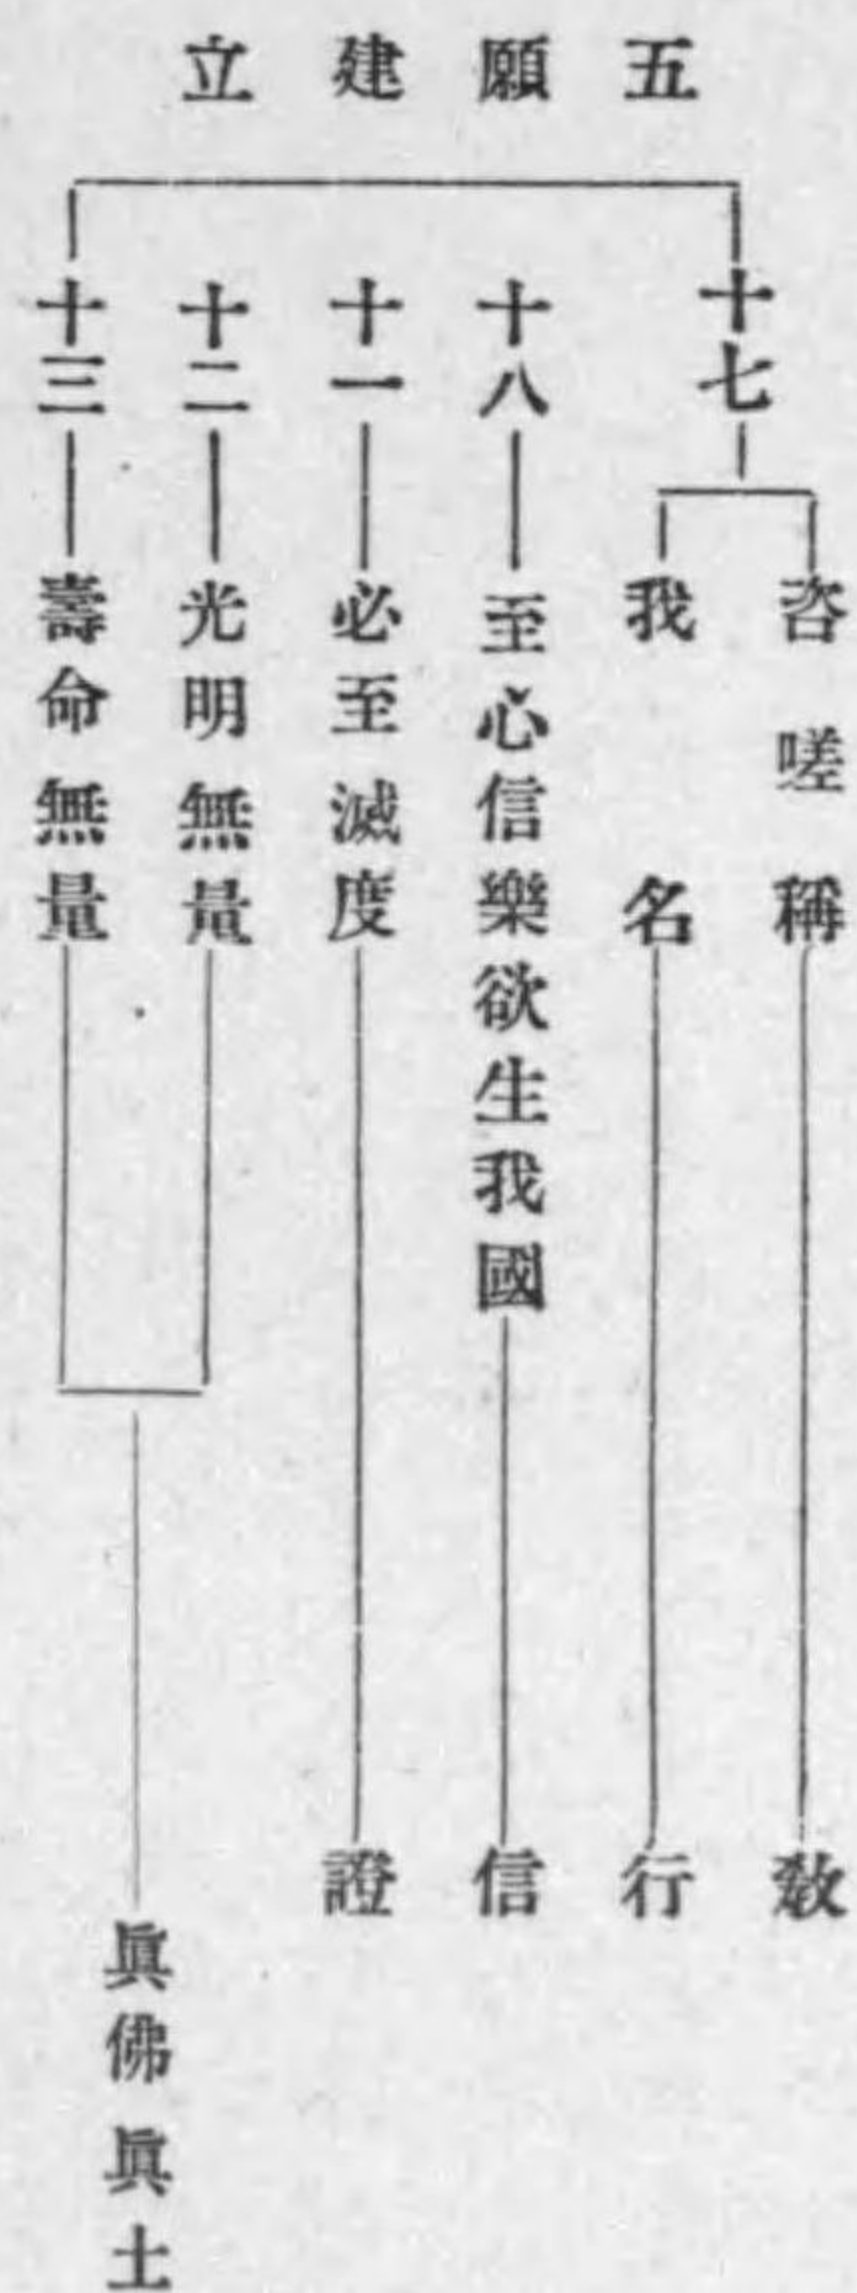 五願建立
十七
咨嗟稱
敎
我名
行
十八
至心信樂欲生我國
信
十一
必至滅度
證
十二
光明無量
十三
壽命無量
眞佛眞土